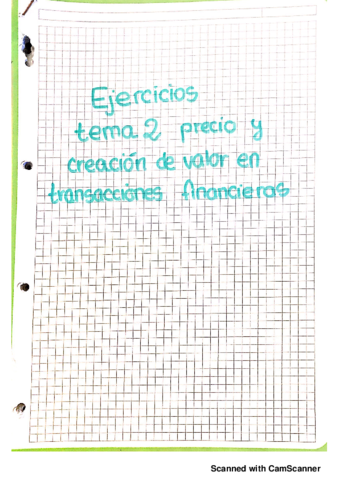 Ejercicios
tema 2 precio y
creación de valor en
transacciones financieras
Scanned with CamScanner